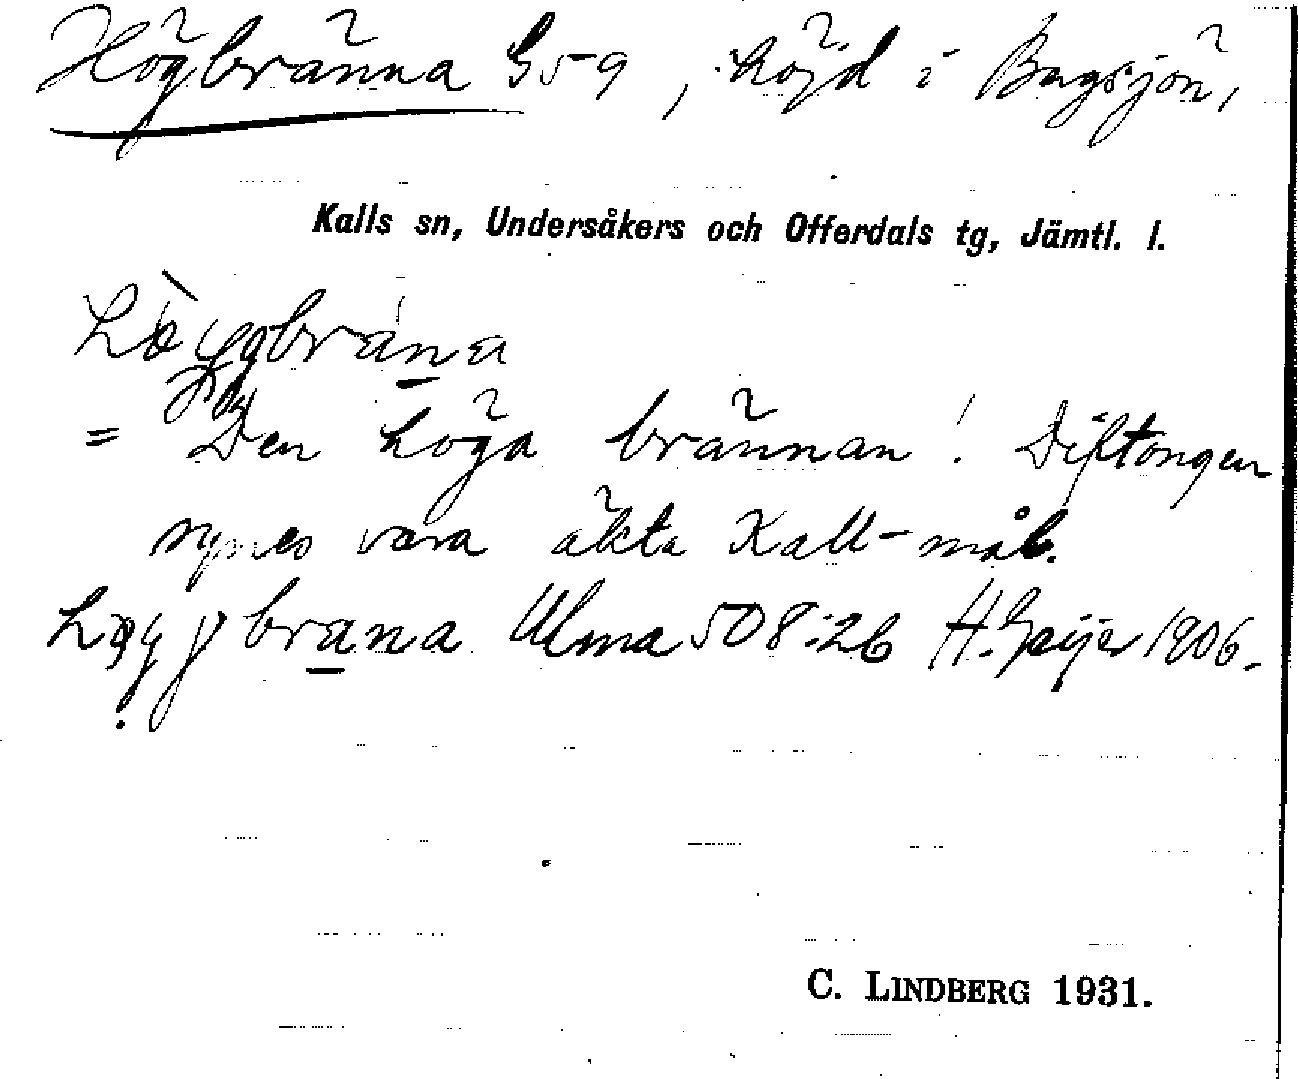 Högbränna 959, höjd i Bugsjön,
Kalls sn, Undersåkers och Offerdals tg, Jämtl. l.
= Den höga brännan! Diftongen
synes vara äkta Kall-mål.
Ulma 508:26 H. Geijer 1906.
C. LINDBERG 1931.